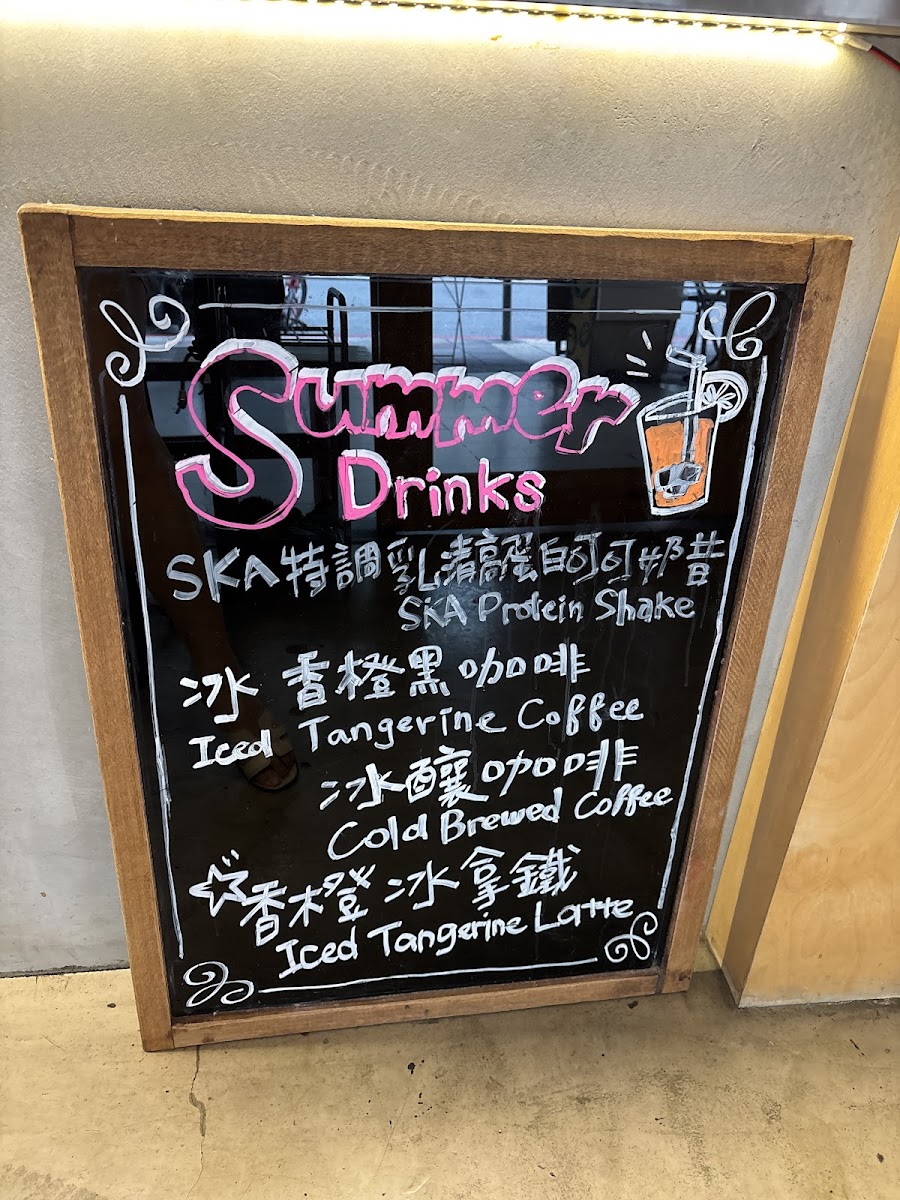 Summer
Drinks
SKA特調乳清高蛋白可可奶昔
SKA Protein Shake
冰 香橙黑咖啡
Iced Tangerine Coffee
冰釀咖啡
Cold Brewed Coffee
香橙冰拿鐵
Iced Tangerine Latte